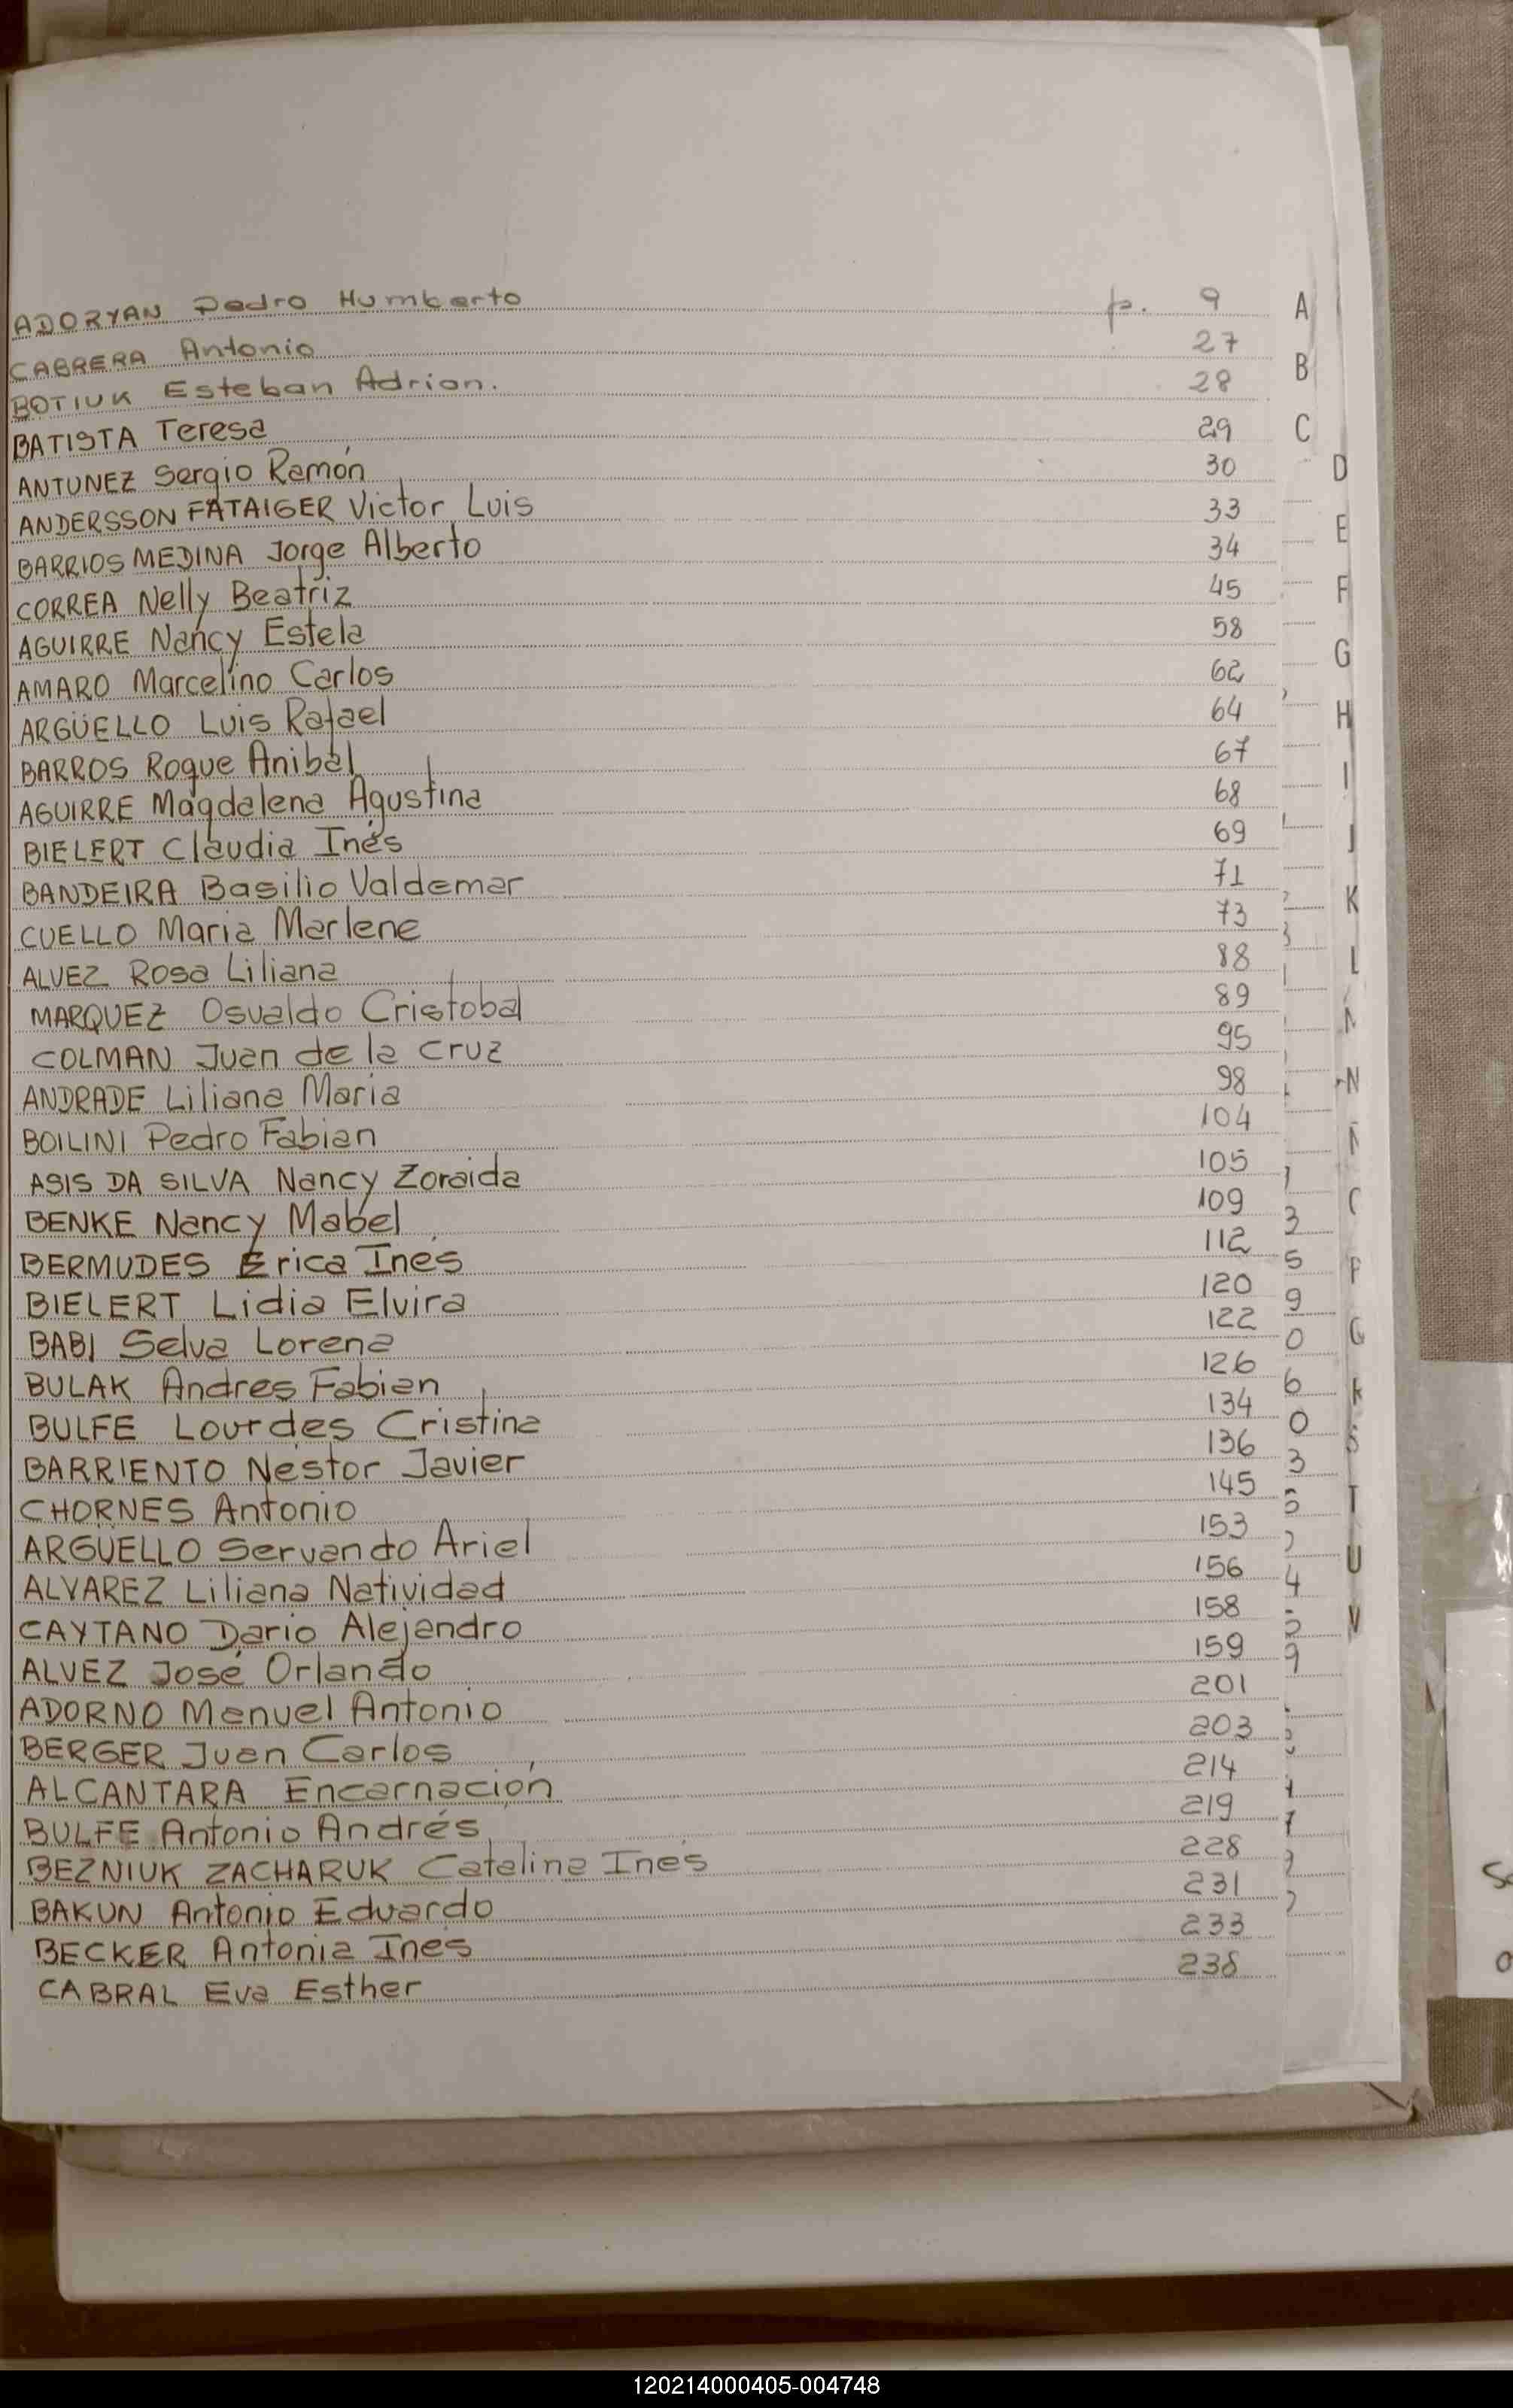 ADORYAN Pedro Humberto p. 9
CABRERA Antonio 27
BOTIUK Esteban Adrian. 28
BATISTA Teresa 29
ANTUNEZ Sergio Ramón 30
ANDERSSON FATAIGER Victor Luis 33
BARRIOS MEDINA Jorge Alberto 34
CORREA Nelly Beatriz 45
AGUIRRE Nancy Estela 58
AMARO Marcelino Carlos 62
ARGÜELLO Luis Rafael 64
BARROS Roque Anibal 67
AGUIRRE Magdalena Agustina 68
BIELERT Claudia Inés 69
BANDEIRA Basilio Valdemar 71
CUELLO Maria Marlene 73
ALVEZ Rosa Liliana 88
MARQUEZ Osvaldo Cristobal 89
COLMAN Juan de la Cruz 95
ANDRADE Liliana Maria 98
BOILINI Pedro Fabian 104
ASIS DA SILVA Nancy Zoraida 105
BENKE Nancy Mabel 109
BERMUDES Erica Inés 112
BIELERT Lidia Elvira 120
BABI Selva Lorena 122
BULAK Andres Fabian 126
BULFE Lourdes Cristina 134
BARRIENTO Nestor Javier 136
CHORNES Antonio 145
ARGÜELLO Servando Ariel 153
ALVAREZ Liliana Natividad 156
CAYTANO Dario Alejandro 158
ALVEZ José Orlando 159
ADORNO Manuel Antonio 201
BERGER Juan Carlos 203
ALCANTARA Encarnación 214
BULFE Antonio Andrés 219
BEZNIUK ZACHARUK Catalina Inés 228
BAKUN Antonio Eduardo 231
BECKER Antonia Inés 233
CABRAL Eva Esther 238
A
B
C
D
E
F
G
H
I
J
K
L
N
G
S
T
U
V
120214000405-004748